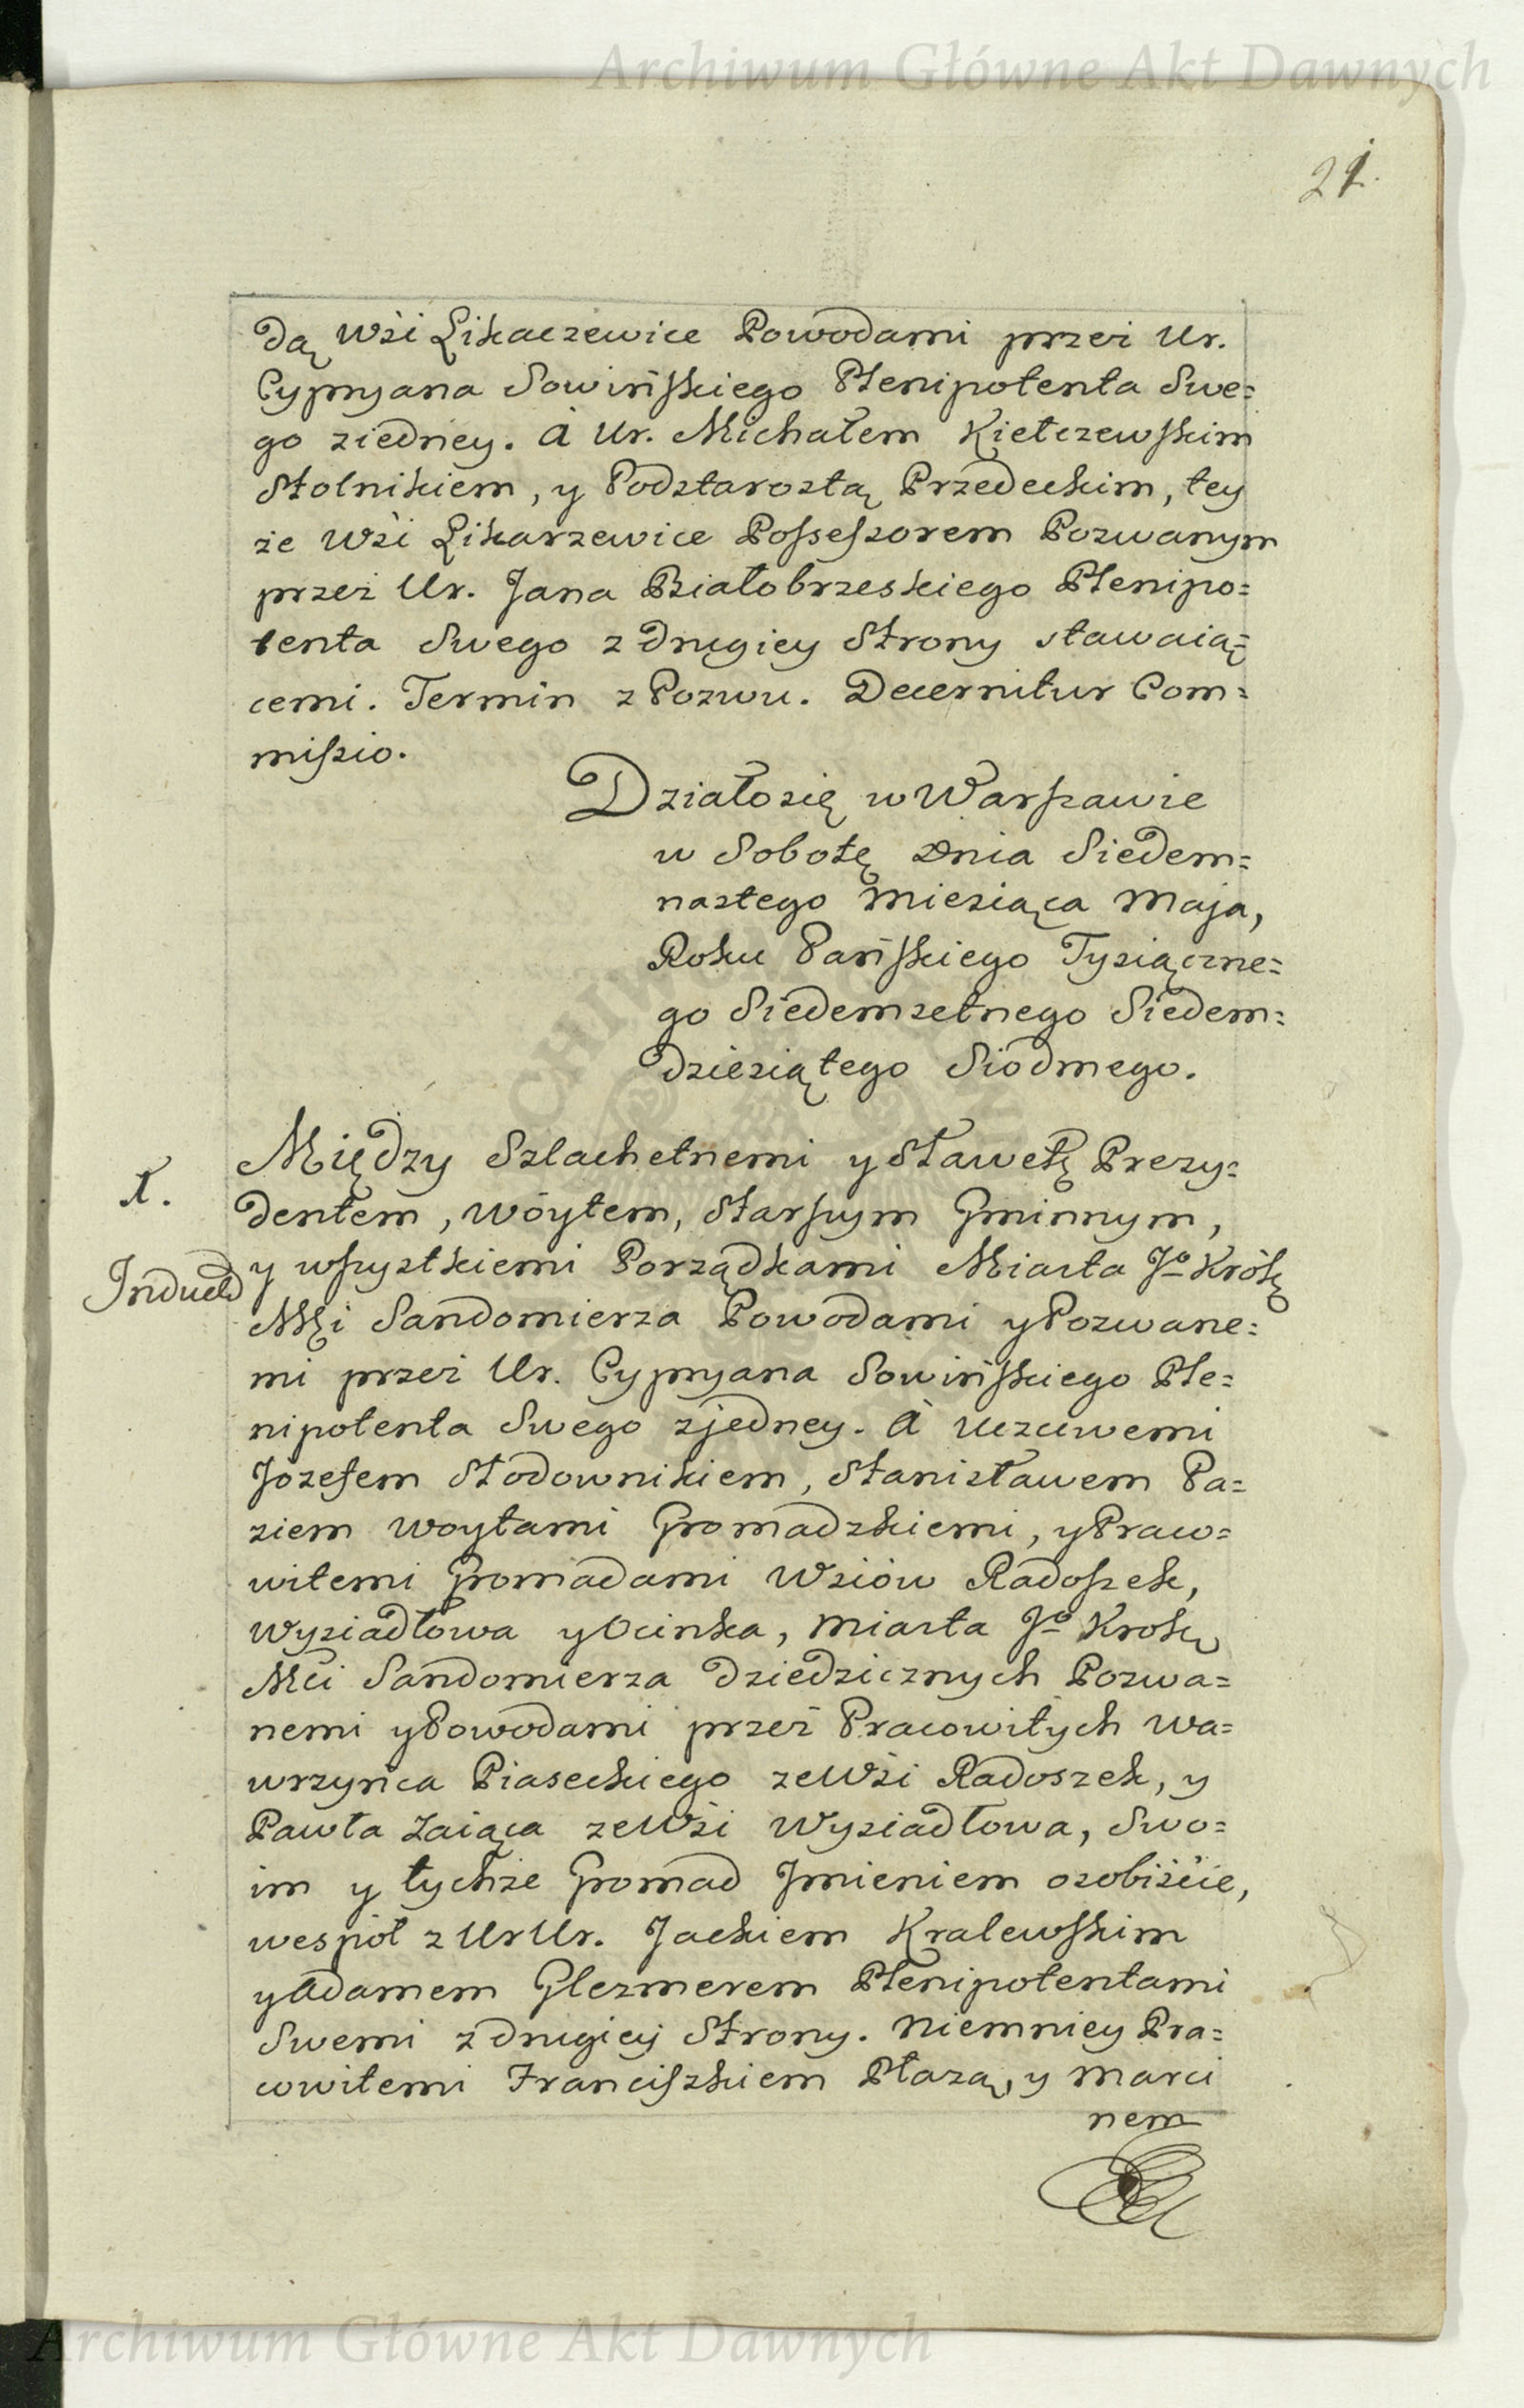 Archiwum Główne Akt Dawnych
21.
dą Wśi Likaczewice Powodami przez Ur.
Cypryana Sowińskiego Plenipotenta Swe=
go ziedney. A Ur. Michałem Kiełczewskim
Stolnikiem, y Podstarostą Przedeckim, tey
że Wśi Likarzewice Possessorem Pozwanym
przez Ur. Jana Białobrzeskiego Plenipo=
tenta Swego z drugiey Strony stawaią=
cemi. Termin z Pozwu. Decernitur Com=
missio.
Działo się w Warszawie
w Sobotę Dnia Siedem=
nastego Miesiąca Maja,
Roku Pańskiego Tysiączne=
go Siedemsetnego Siedem=
dziesiątego Siodmego.
X.
Między Szlachetnemi y Sławetę Prezy=
dentem, Wóytem, Starszym Gminnym,
Induct
y wszystkiemi Porządkami Miasta Jo Krolę
Mći Sandomierza Powodami y Pozwane=
mi przez Ur. Cypryana Sowińskiego Ple=
nipotenta Swego zjedney. A Uczciwemi
Józefem Stodownikiem, Stanisławem Pa=
ziem Woytami Gromadzkiemi, y Praw=
witemi Gromadami Wsiów Radoszek,
Wysiadłowa y Ocinka, Miasta Jo Krolw
Mći Sandomierza Dziedzicznych Pozwa=
nemi y Powodami przez Pracowitych Wa=
wrzyńca Piaseckiego ze Wśi Radoszek, y
Pawła Zaiąca ze Wśi Wysiadłowa, Swo=
im y tychże Gromad Imieniem osobiście,
wespół z Ur Ur. Jackiem Kralewskim
y Adamem Glezmerem Plenipotentami
Swemi z drugiey Strony. Niemniey Pra=
cowitemi Franciszkiem Płazą, y Marci
nem
CHIWUM
Archiwum Główne Akt Dawnych